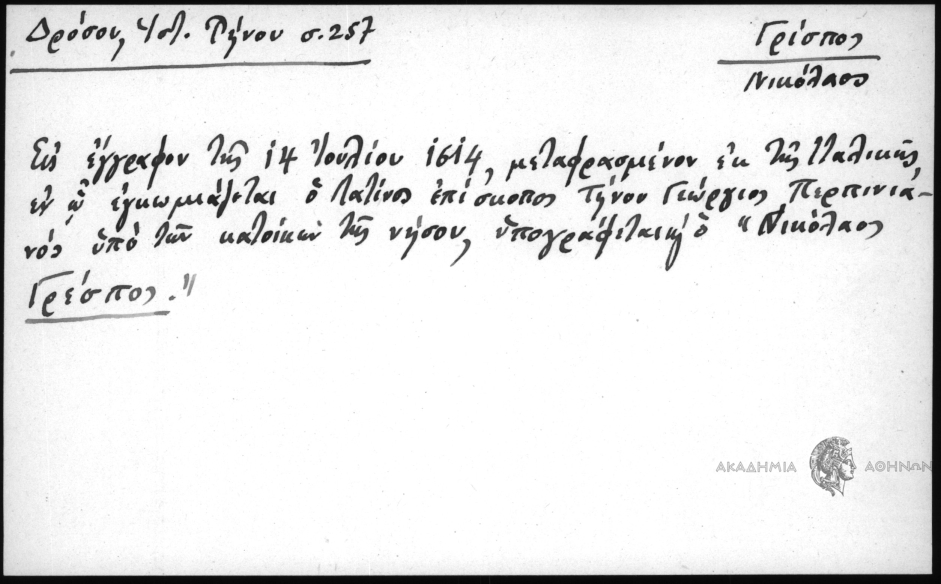 Δρόσου, Ἱστ. Τήνου σ. 257
Γρίσπος
Νικόλαος
Εἰς ἔγγραφον τῆς 14 Ἰουλίου 1614, μεταφρασμένον ἐκ τῆς Ἰταλικῆς,
ἐν ᾧ ἐγκωμιάζεται ὁ Λατῖνος ἐπίσκοπος Τήνου Γεώργιος Περπινιά-
νός ὑπὸ τῶν κατοίκων τῆς νήσου, ὑπογράφεται κ' ὁ "Νικόλαος
Γρέσπος."
ΑΚΑΔΗΜΙΑ ΑΘΗΝΩΝ